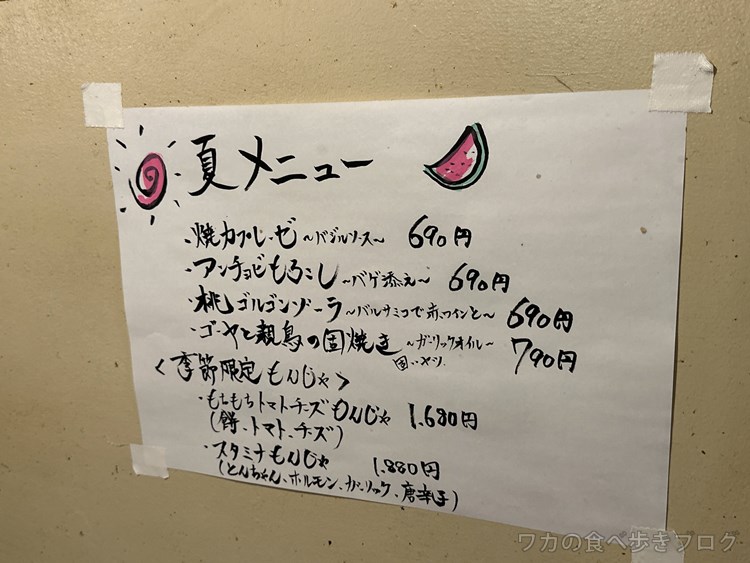 夏メニュー
・焼カプレーゼ ～バジルソース～ 690円
・アンチョビもろこし ～バゲ添え～ 690円
・桃ゴルゴンゾーラ ～バルサミコで赤ワインと～ 690円
・ゴーヤと親鳥の固焼き ～ガーリックオイル～ 790円
固いヤツ
＜季節限定もんじゃ＞
・もちもちトマトチーズもんじゃ 1.680円
(餅、トマト、チーズ)
・スタミナもんじゃ 1.880円
(とんちゃん、ホルモン、ガーリック、唐辛子)
ワカの食べ歩きブログ